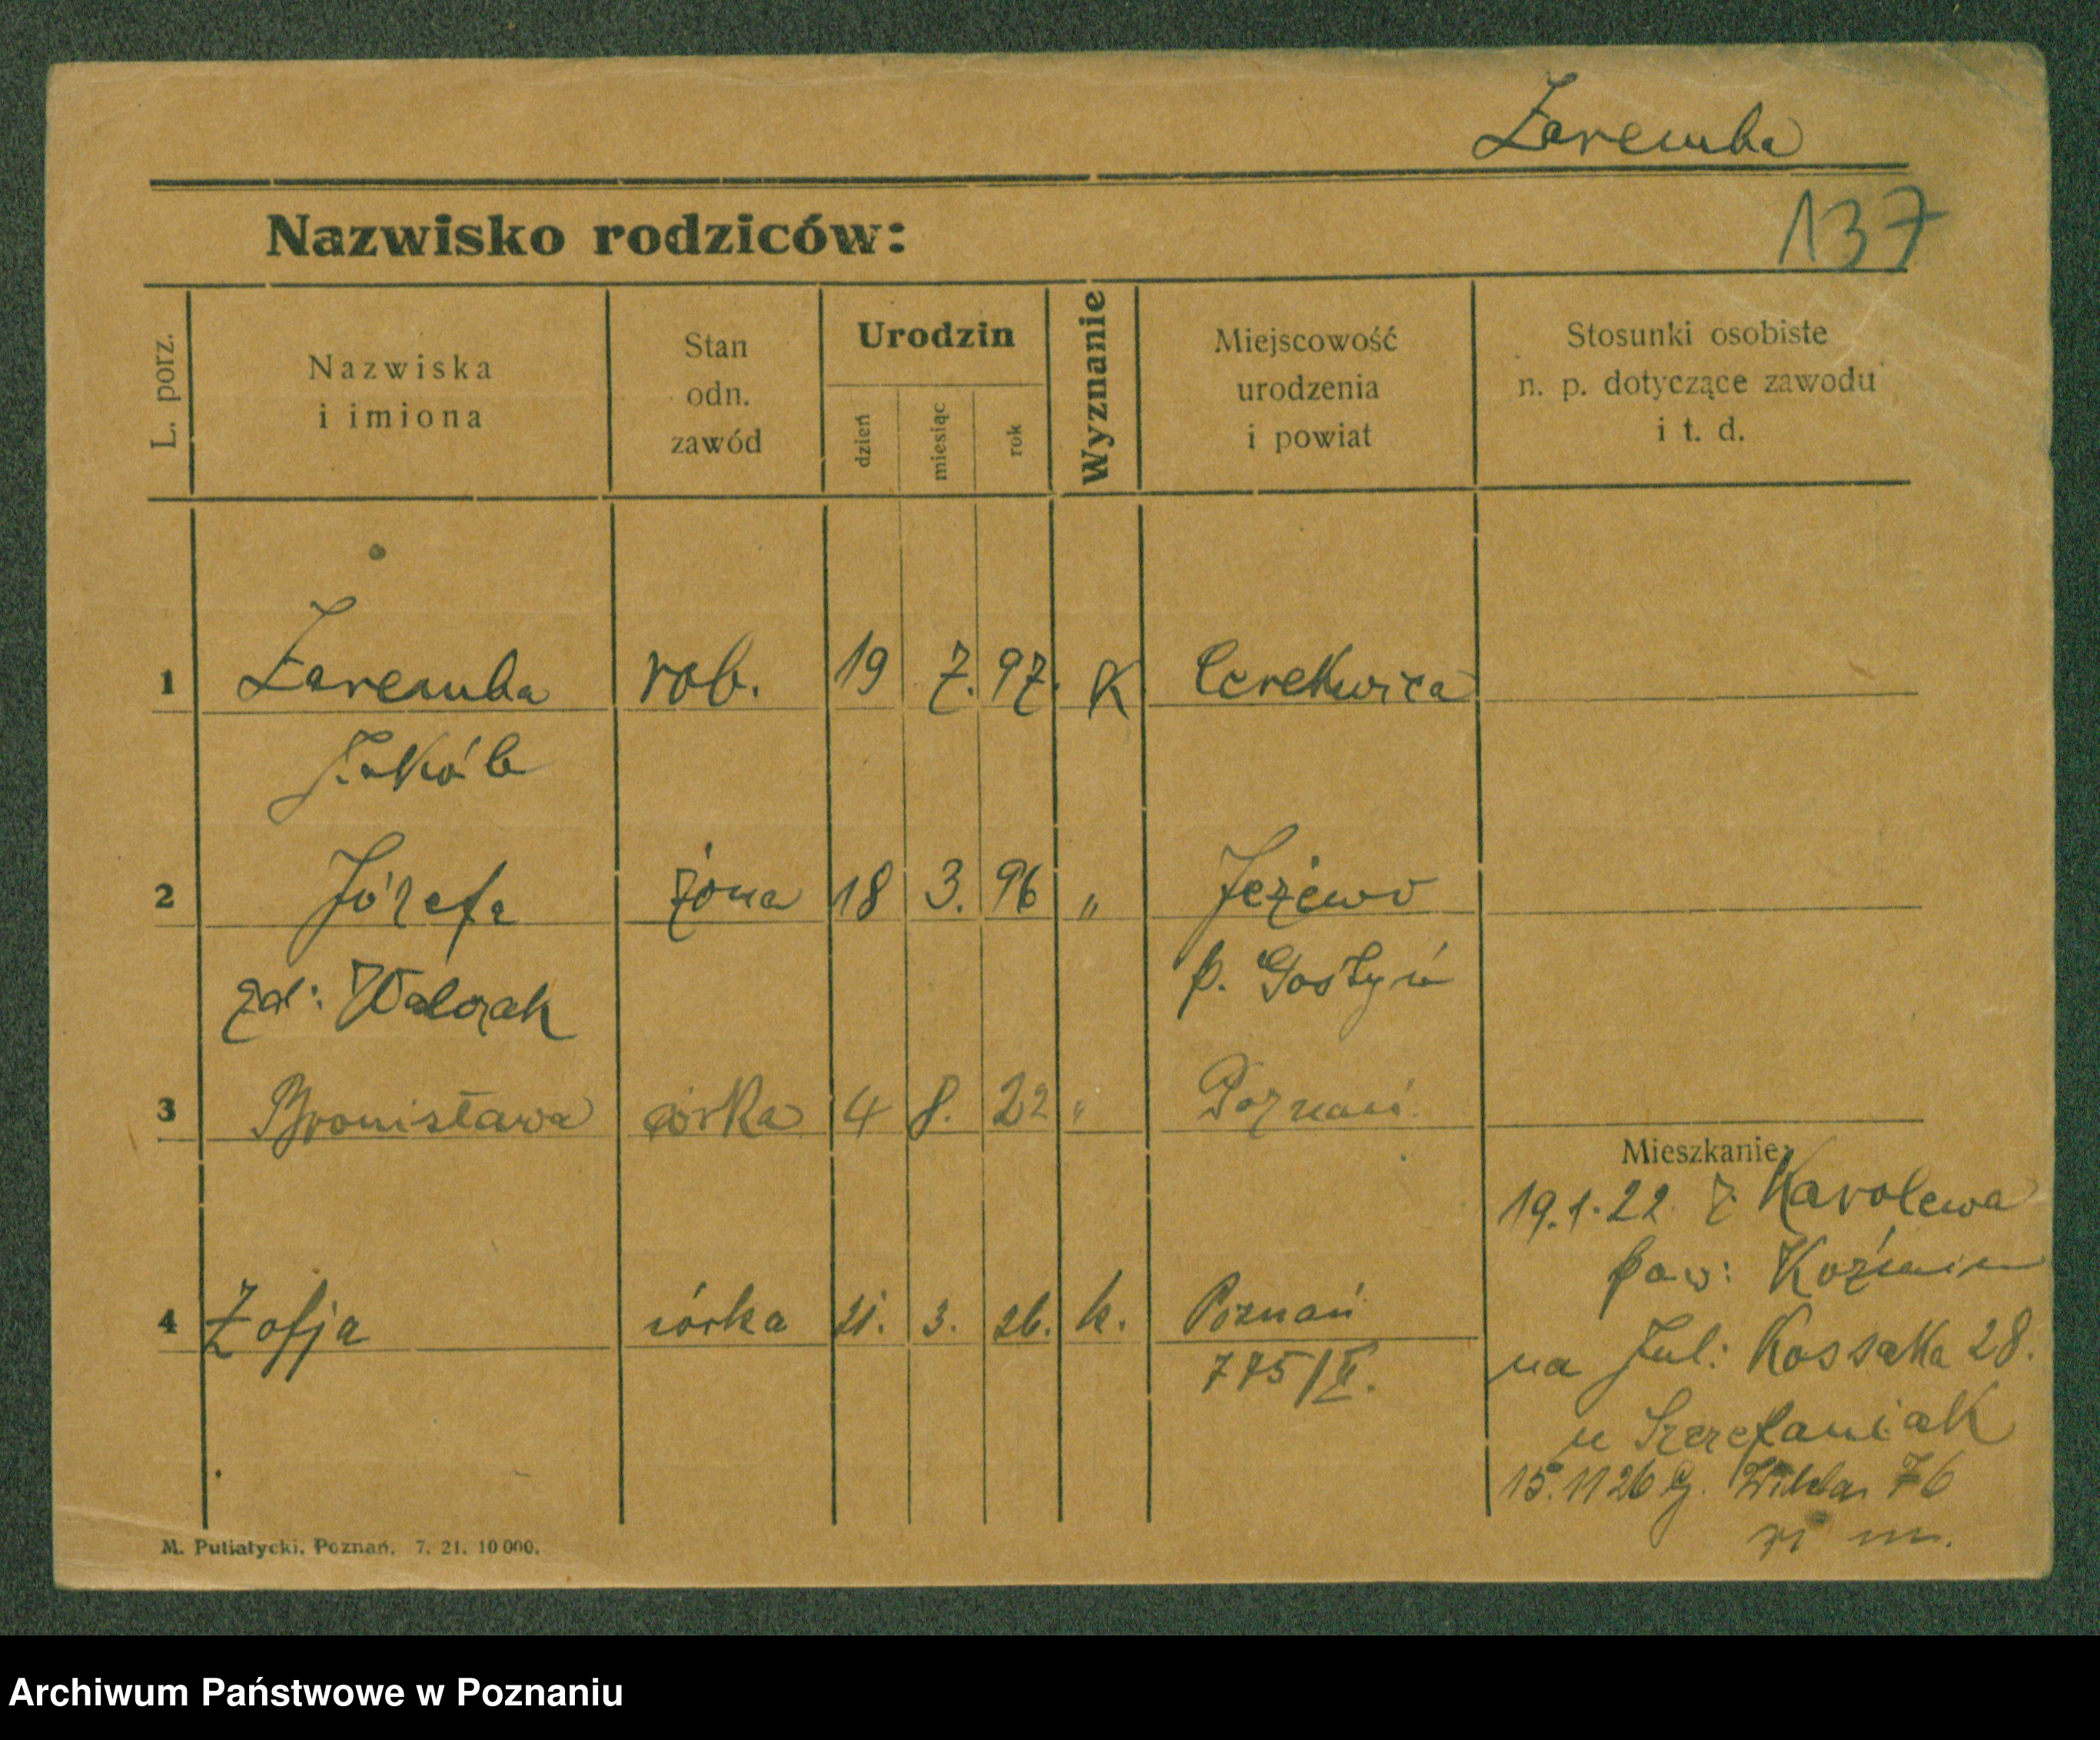 Zaremba
Nazwisko rodziców:
137
L. porz.
Nazwiska
i imiona
Stan
odn.
zawód
Urodzin
dzień
miesiąc
rok
Wyznanie
Miejscowość
urodzenia
i powiat
Stosunki osobiste
n. p. dotyczące zawodu
i t. d.
1 Zaremba rob. 19 7. 97. K Cerekwica
Jakób
2 Józefa żona 18 3. 96 " Jeżewo
Walczak p. Gostyń
3 Bronisława córka 4 8. 22 " Poznań
Mieszkanie:
19.1.22. z Karolewa
pow: Koźmin
4 Zofja córka 21. 3. 26. k. Poznań
775/II.
na Jul: Kossaka 28.
u Szczepaniak
15.11 26 G. Wilda 76
m.
M. Putiatycki, Poznań. 7. 21. 10 000.
Archiwum Państwowe w Poznaniu